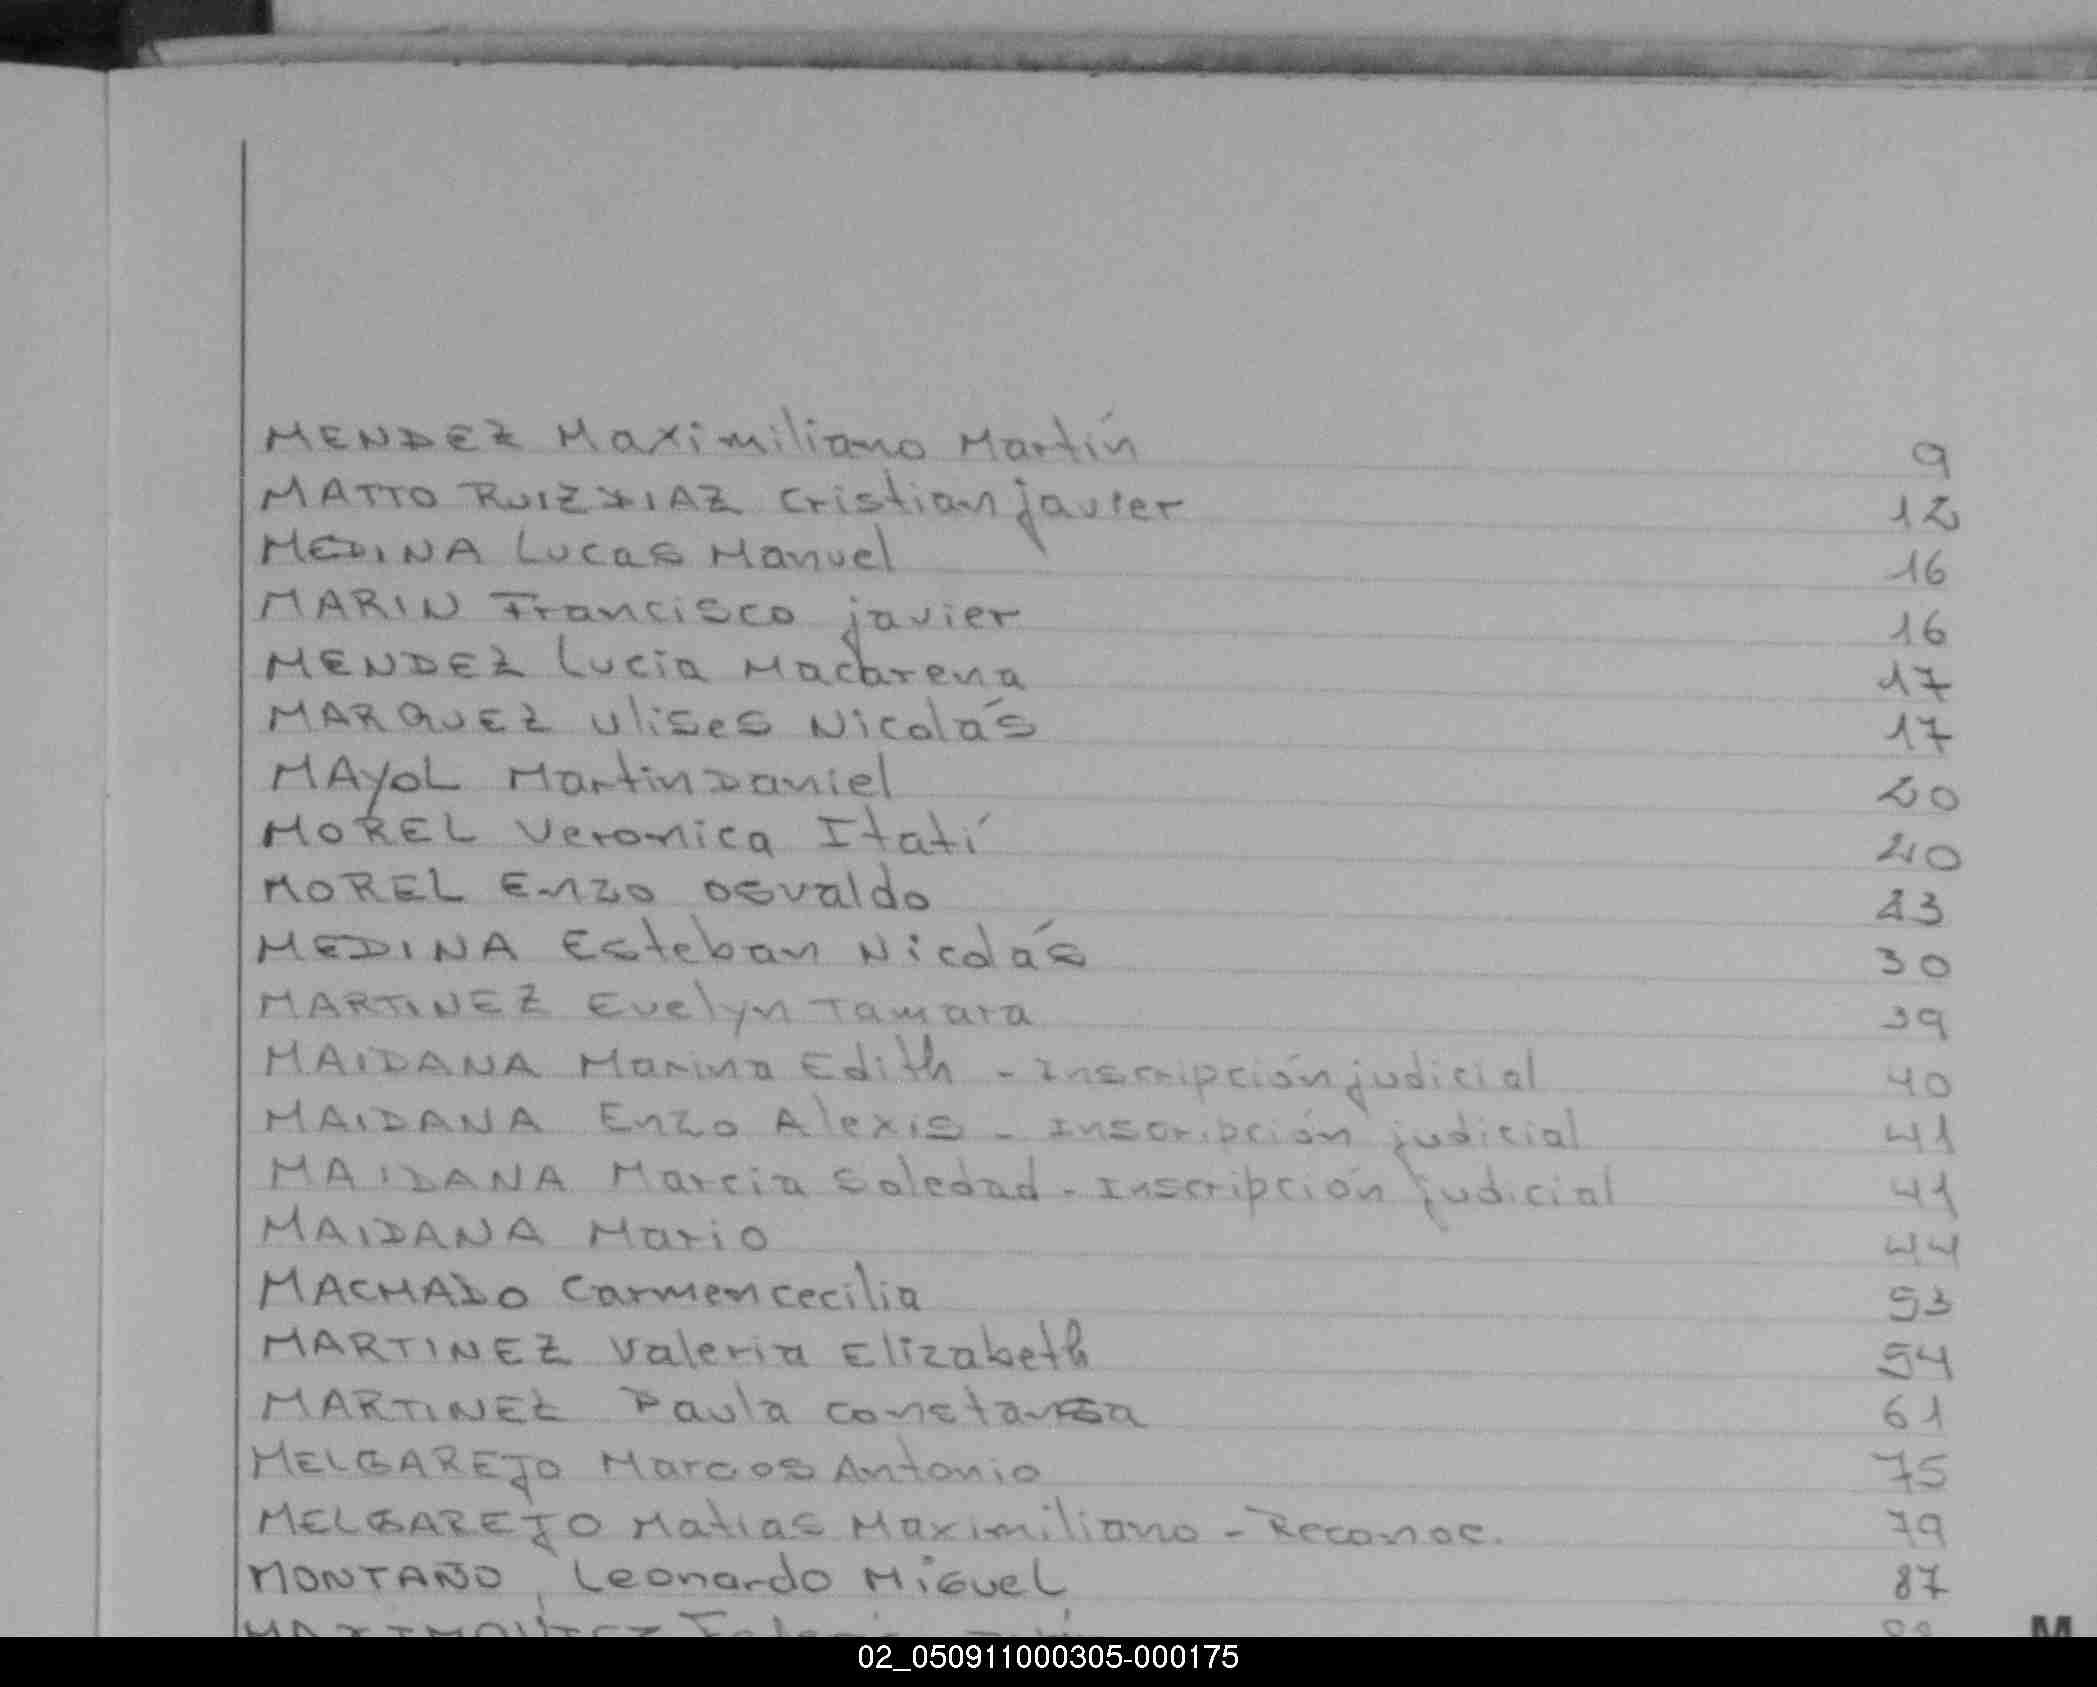 MENDEZ Maximiliano Martín 9
MATTO RUIZ DIAZ Cristian javier 12
MEDINA Lucas Manuel 16
MARIN Francisco javier 16
MENDEZ Lucía Macarena 17
MARQUEZ Ulises Nicolás 17
MAYOL Martin Daniel 20
MOREL Veronica Itatí 20
MOREL Enzo Osvaldo 23
MEDINA Esteban Nicolás 30
MARTINEZ Evelyn Tamara 39
MAIDANA Marina Edith - Inscripción judicial 40
MAIDANA Enzo Alexis - Inscripción judicial 41
MAIDANA Marcia Soledad - Inscripción judicial 41
MAIDANA Mario 44
MACHADO Carmen cecilia 53
MARTINEZ Valeria Elizabeth 54
MARTINEZ Paula constansa 61
MELGAREJO Marcos Antonio 75
MELGAREJO Matias Maximiliano - Reconoc. 79
MONTAÑO, Leonardo Miguel 87
M
02_050911000305-000175